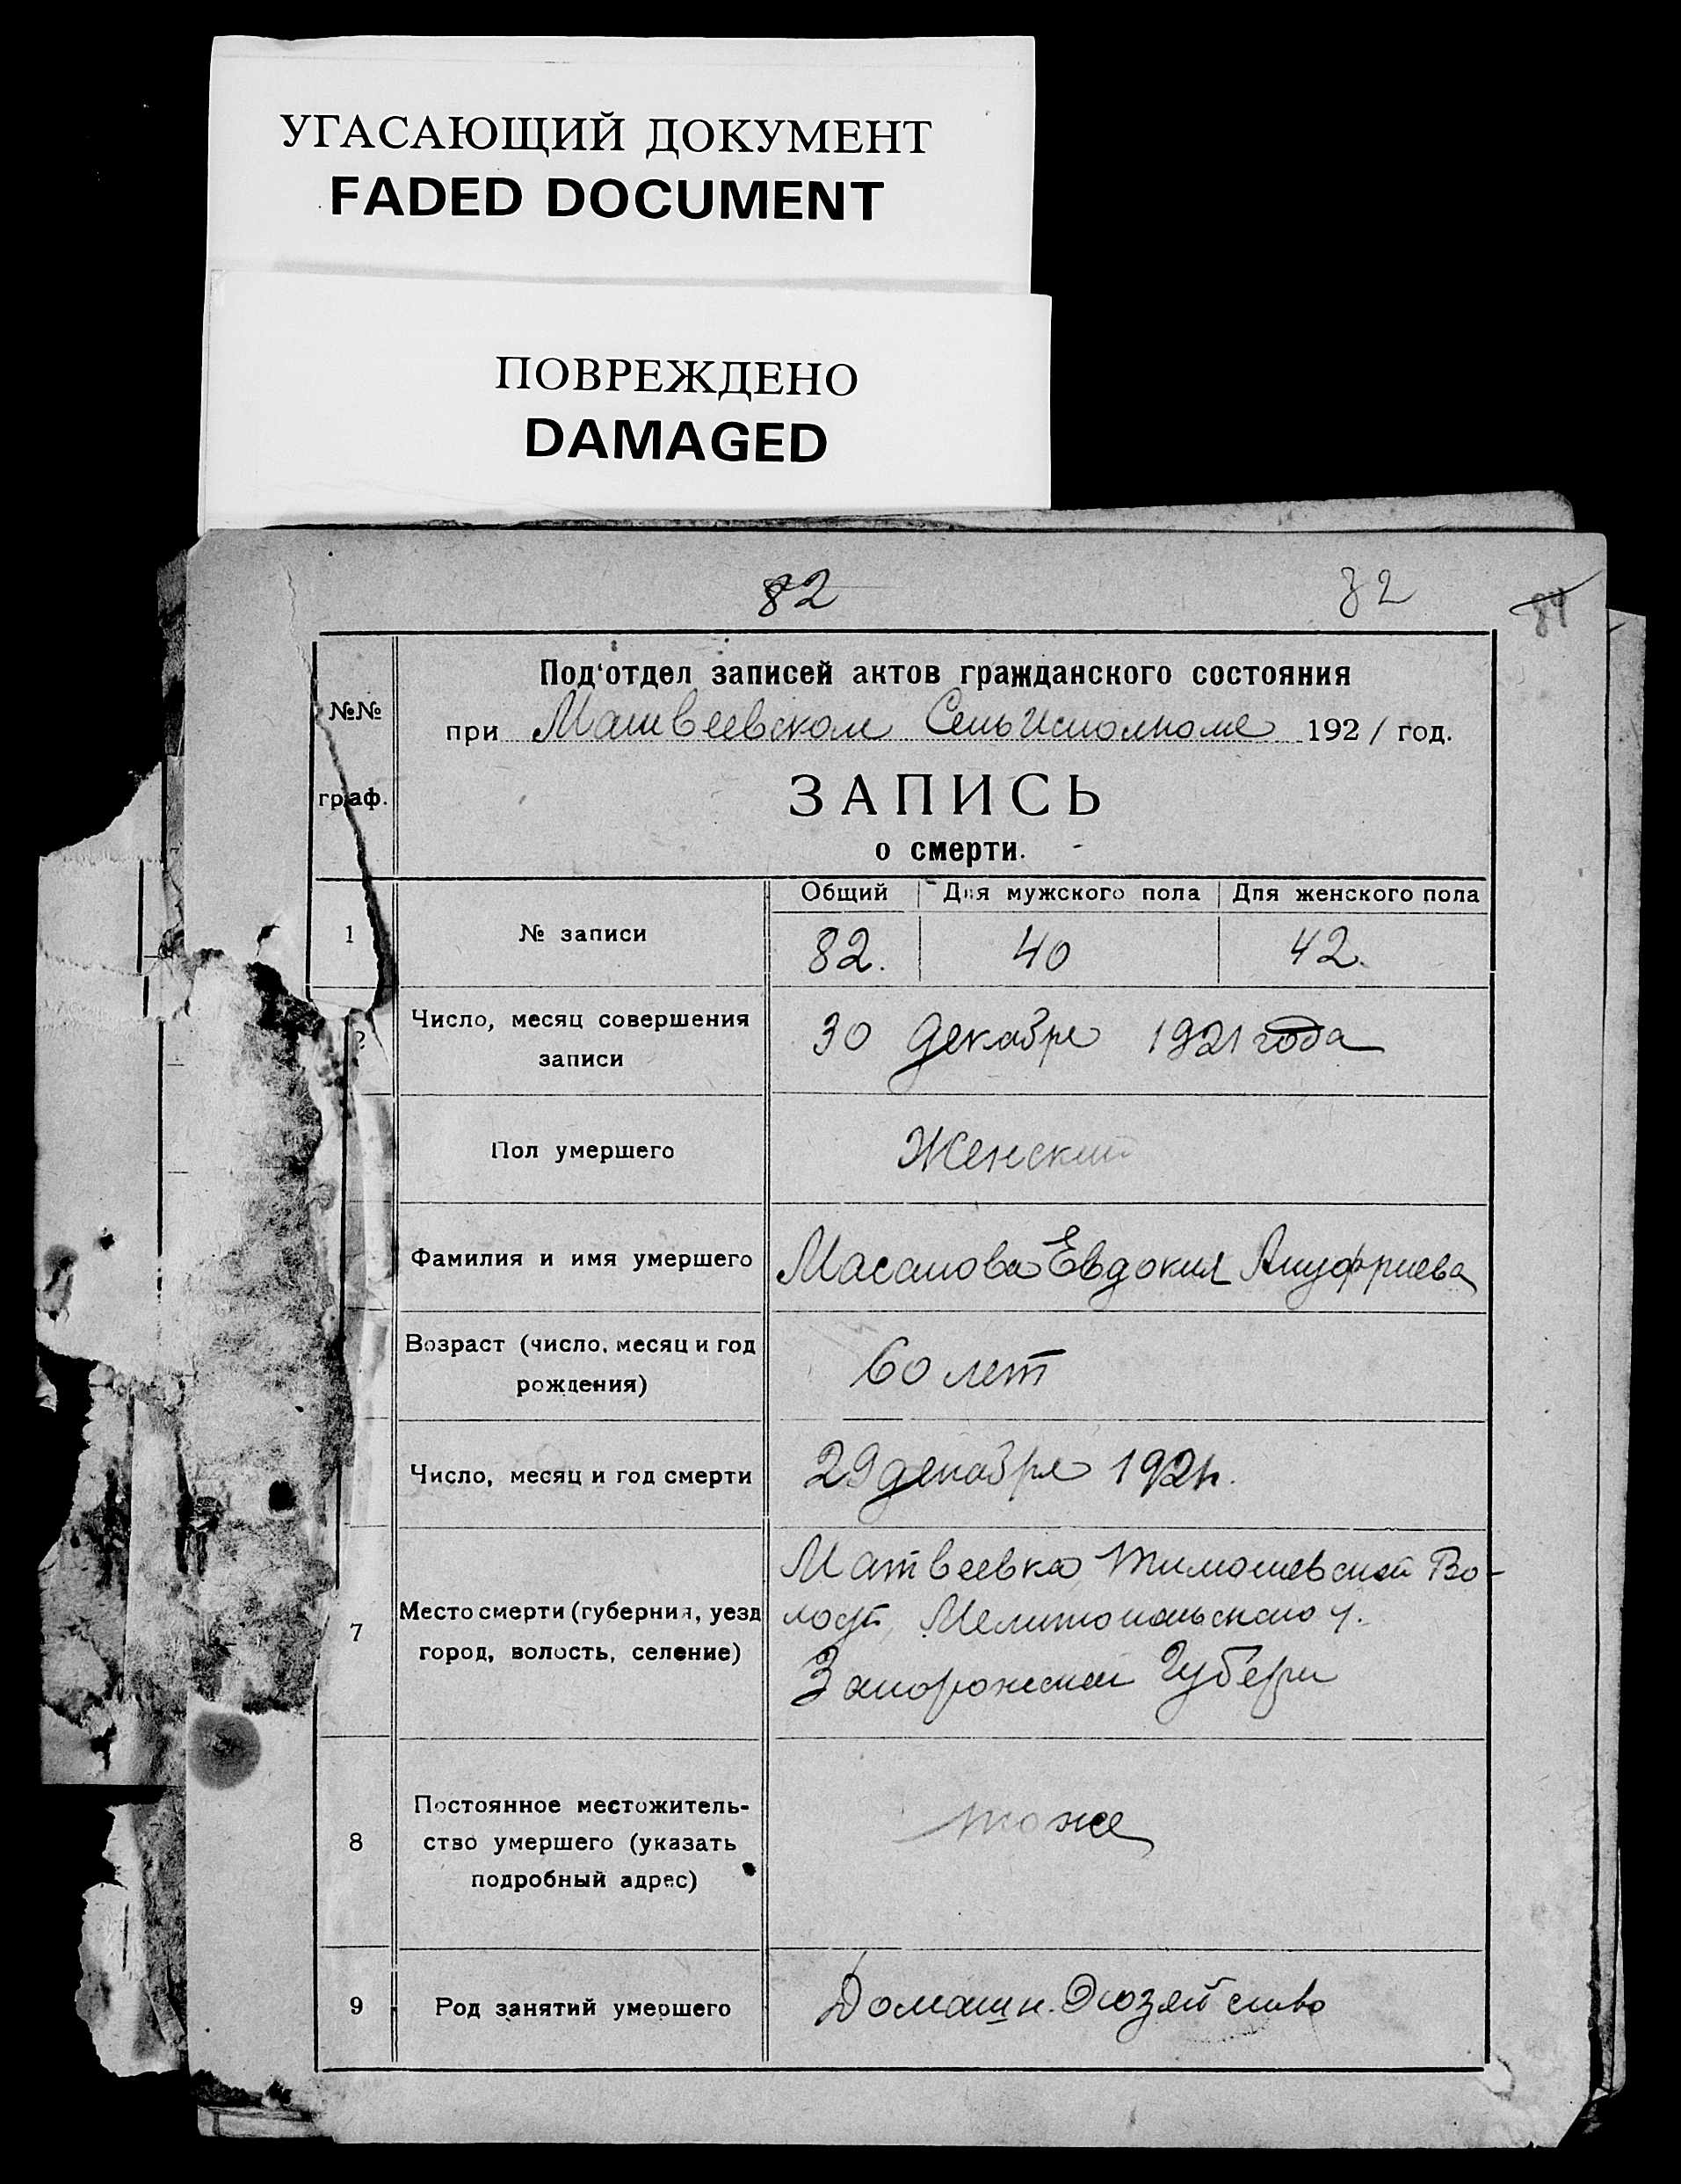 УГАСАЮЩИЙ ДОКУМЕНТ
FADED DOCUMENT
ПОВРЕЖДЕНО
DAMAGED
82 32 84
Под'отдел записей актов гражданского состояния
№№
при Матвеевском СельИсполкоме 1921 год.
граф.
ЗАПИСЬ
о смерти.
Общий Для мужского пола Для женского пола
1 № записи 82. 40 42.
2 Число, месяц совершения
записи
30 декабря 1921 года
Пол умершего Женский
Фамилия и имя умершего Масалова Евдокия Ануфриева
Возраст (число, месяц и год
рождения)
60 лет
Число, месяц и год смерти 29 декабря 1921г.
Матвеевка Тимошевской Во-
7 Место смерти (губерния, уезд
город, волость, селение)
лости, Мелитопольского у.
Запорожской Губерн
Постоянное местожитель-
8 ство умершего (указать
подробный адрес)
тоже
9 Род занятий умершего Домашн. Хозяйство